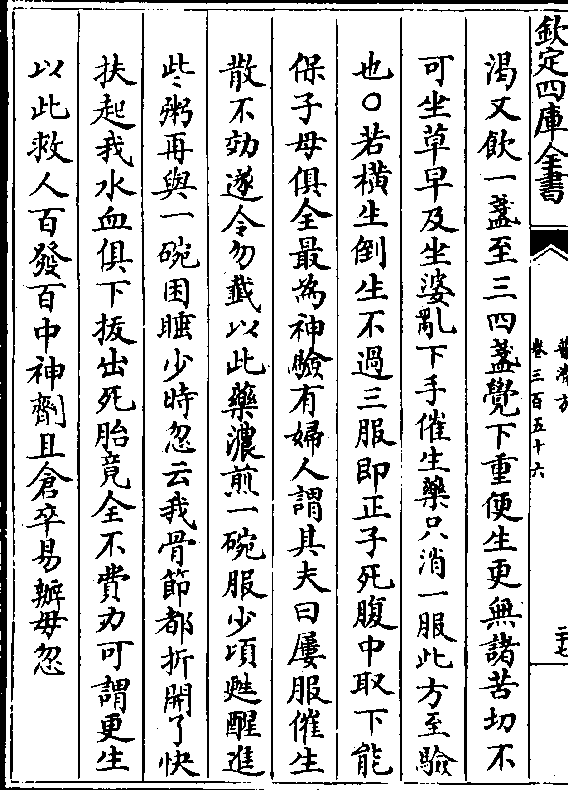 欽定四庫全書
普濟方
卷三百五十六
二十七
渴又飲一盞至三四盞覺下重便生更無諸苦切不
可坐草早及坐婆亂下手催生藥只消一服此方至驗
也○若橫生倒生不過三服即正子死腹中取下能
保子母俱全最為神驗有婦人謂其夫曰屢服催生
散不効遂令勿藏以此藥濃煎一碗服少頃甦醒進
些粥再與一碗困睡少時忽云我骨節都折開了快
扶起我水血俱下拔出死胎竟全不費力可謂更生
以此救人百發百中神劑且倉卒易辦毋忽